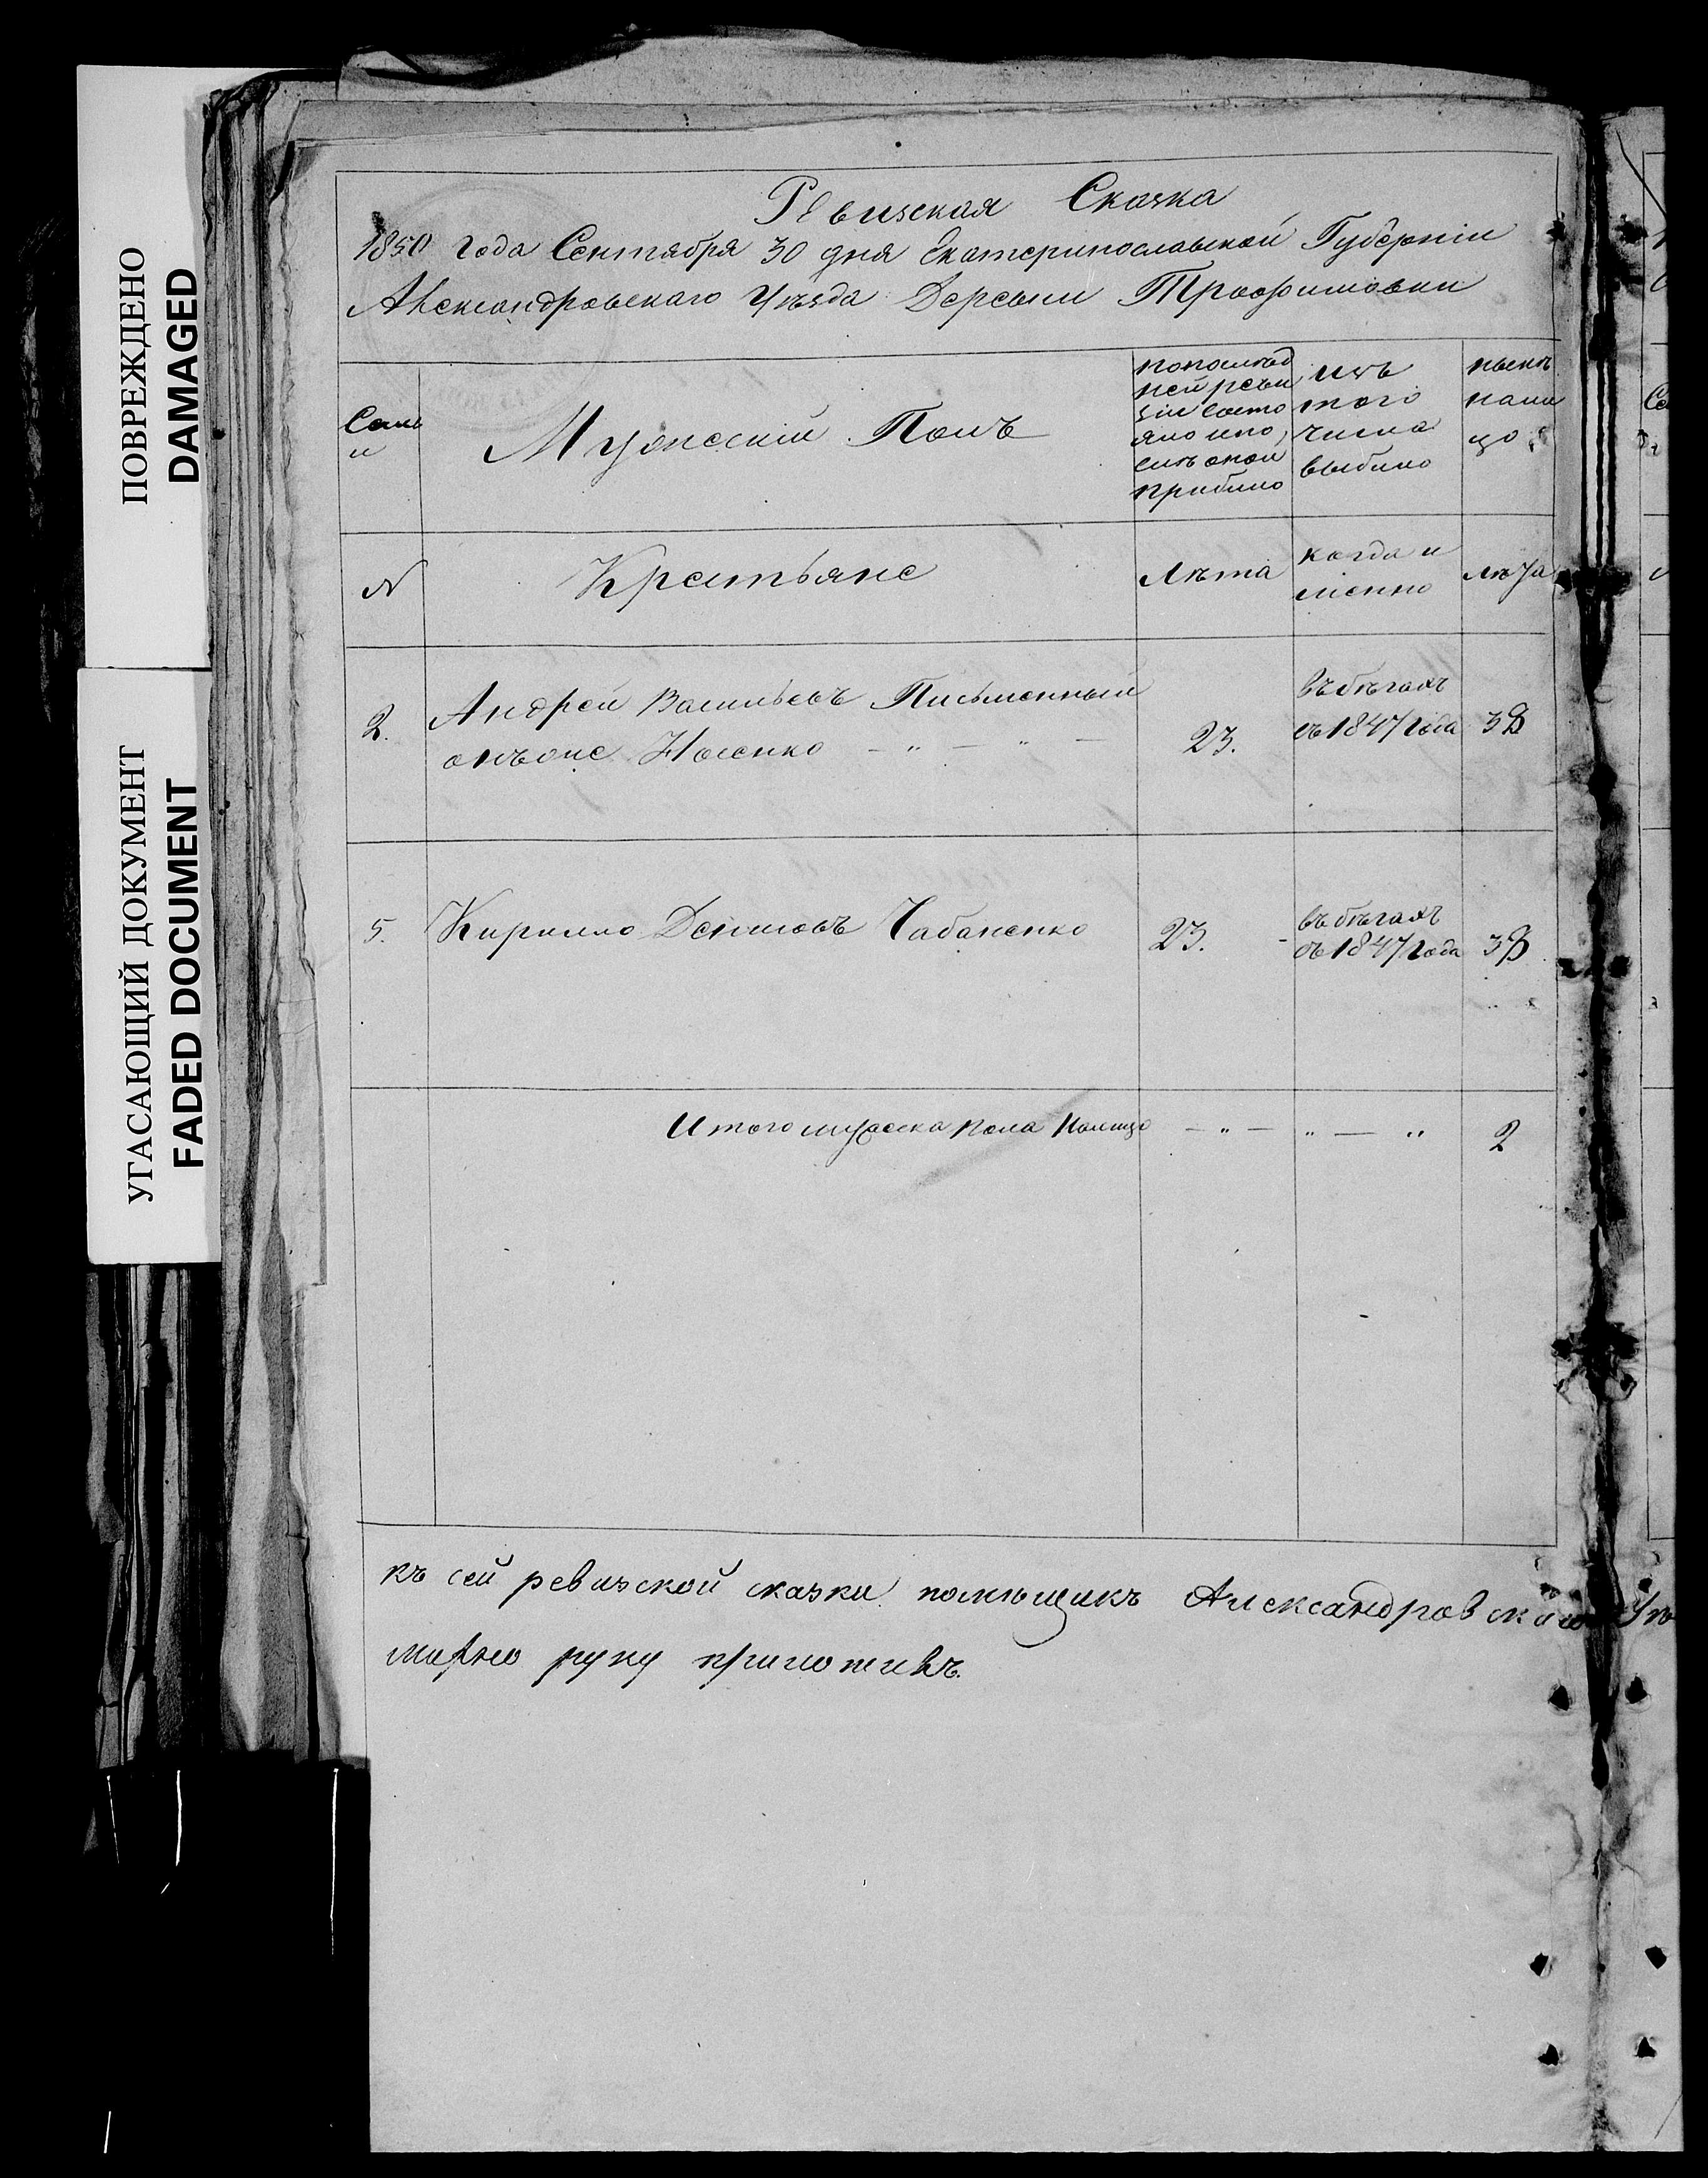 ПОВРЕЖДЕНО
DAMAGED
УГАСАЮЩИЙ ДОКУМЕНТ
FADED DOCUMENT
Ревизская Сказка
1850 года Сентября 30 дня Екатеринославской Губерніи
Александровскаго Уѣзда Деревни Трофимовки
Семи
и
Мужескій Полъ
попослѣд
ней реви
зіи состо
яло ипо
слѣ оной
прибыло
изъ
того
числа
выбыло
нынѣ
нали
цо
N
Крестьяне
Лѣта
когда и
мѣнно
лѣта
2.
Андрей Васильевъ Письменный
онъоже Носенко — " — " —
23.
въ бѣгахъ
съ 1847 года
38
5.
Кирилло Денисовъ Чабаненко
23.
въ бѣгахъ
съ 1847 года
38
Итого мужеска пола налицо — " — " — "
2
къ сей ревизской сказки помѣщикъ Александровскаго Уѣ
руку приложивъ.